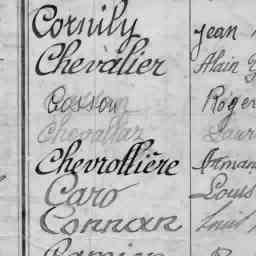 Cornily Jean
Chevalier Alain
Cosson Roger
Chevallaz Laur
Chevrollière Arman
Caro Louis
Connan Louis